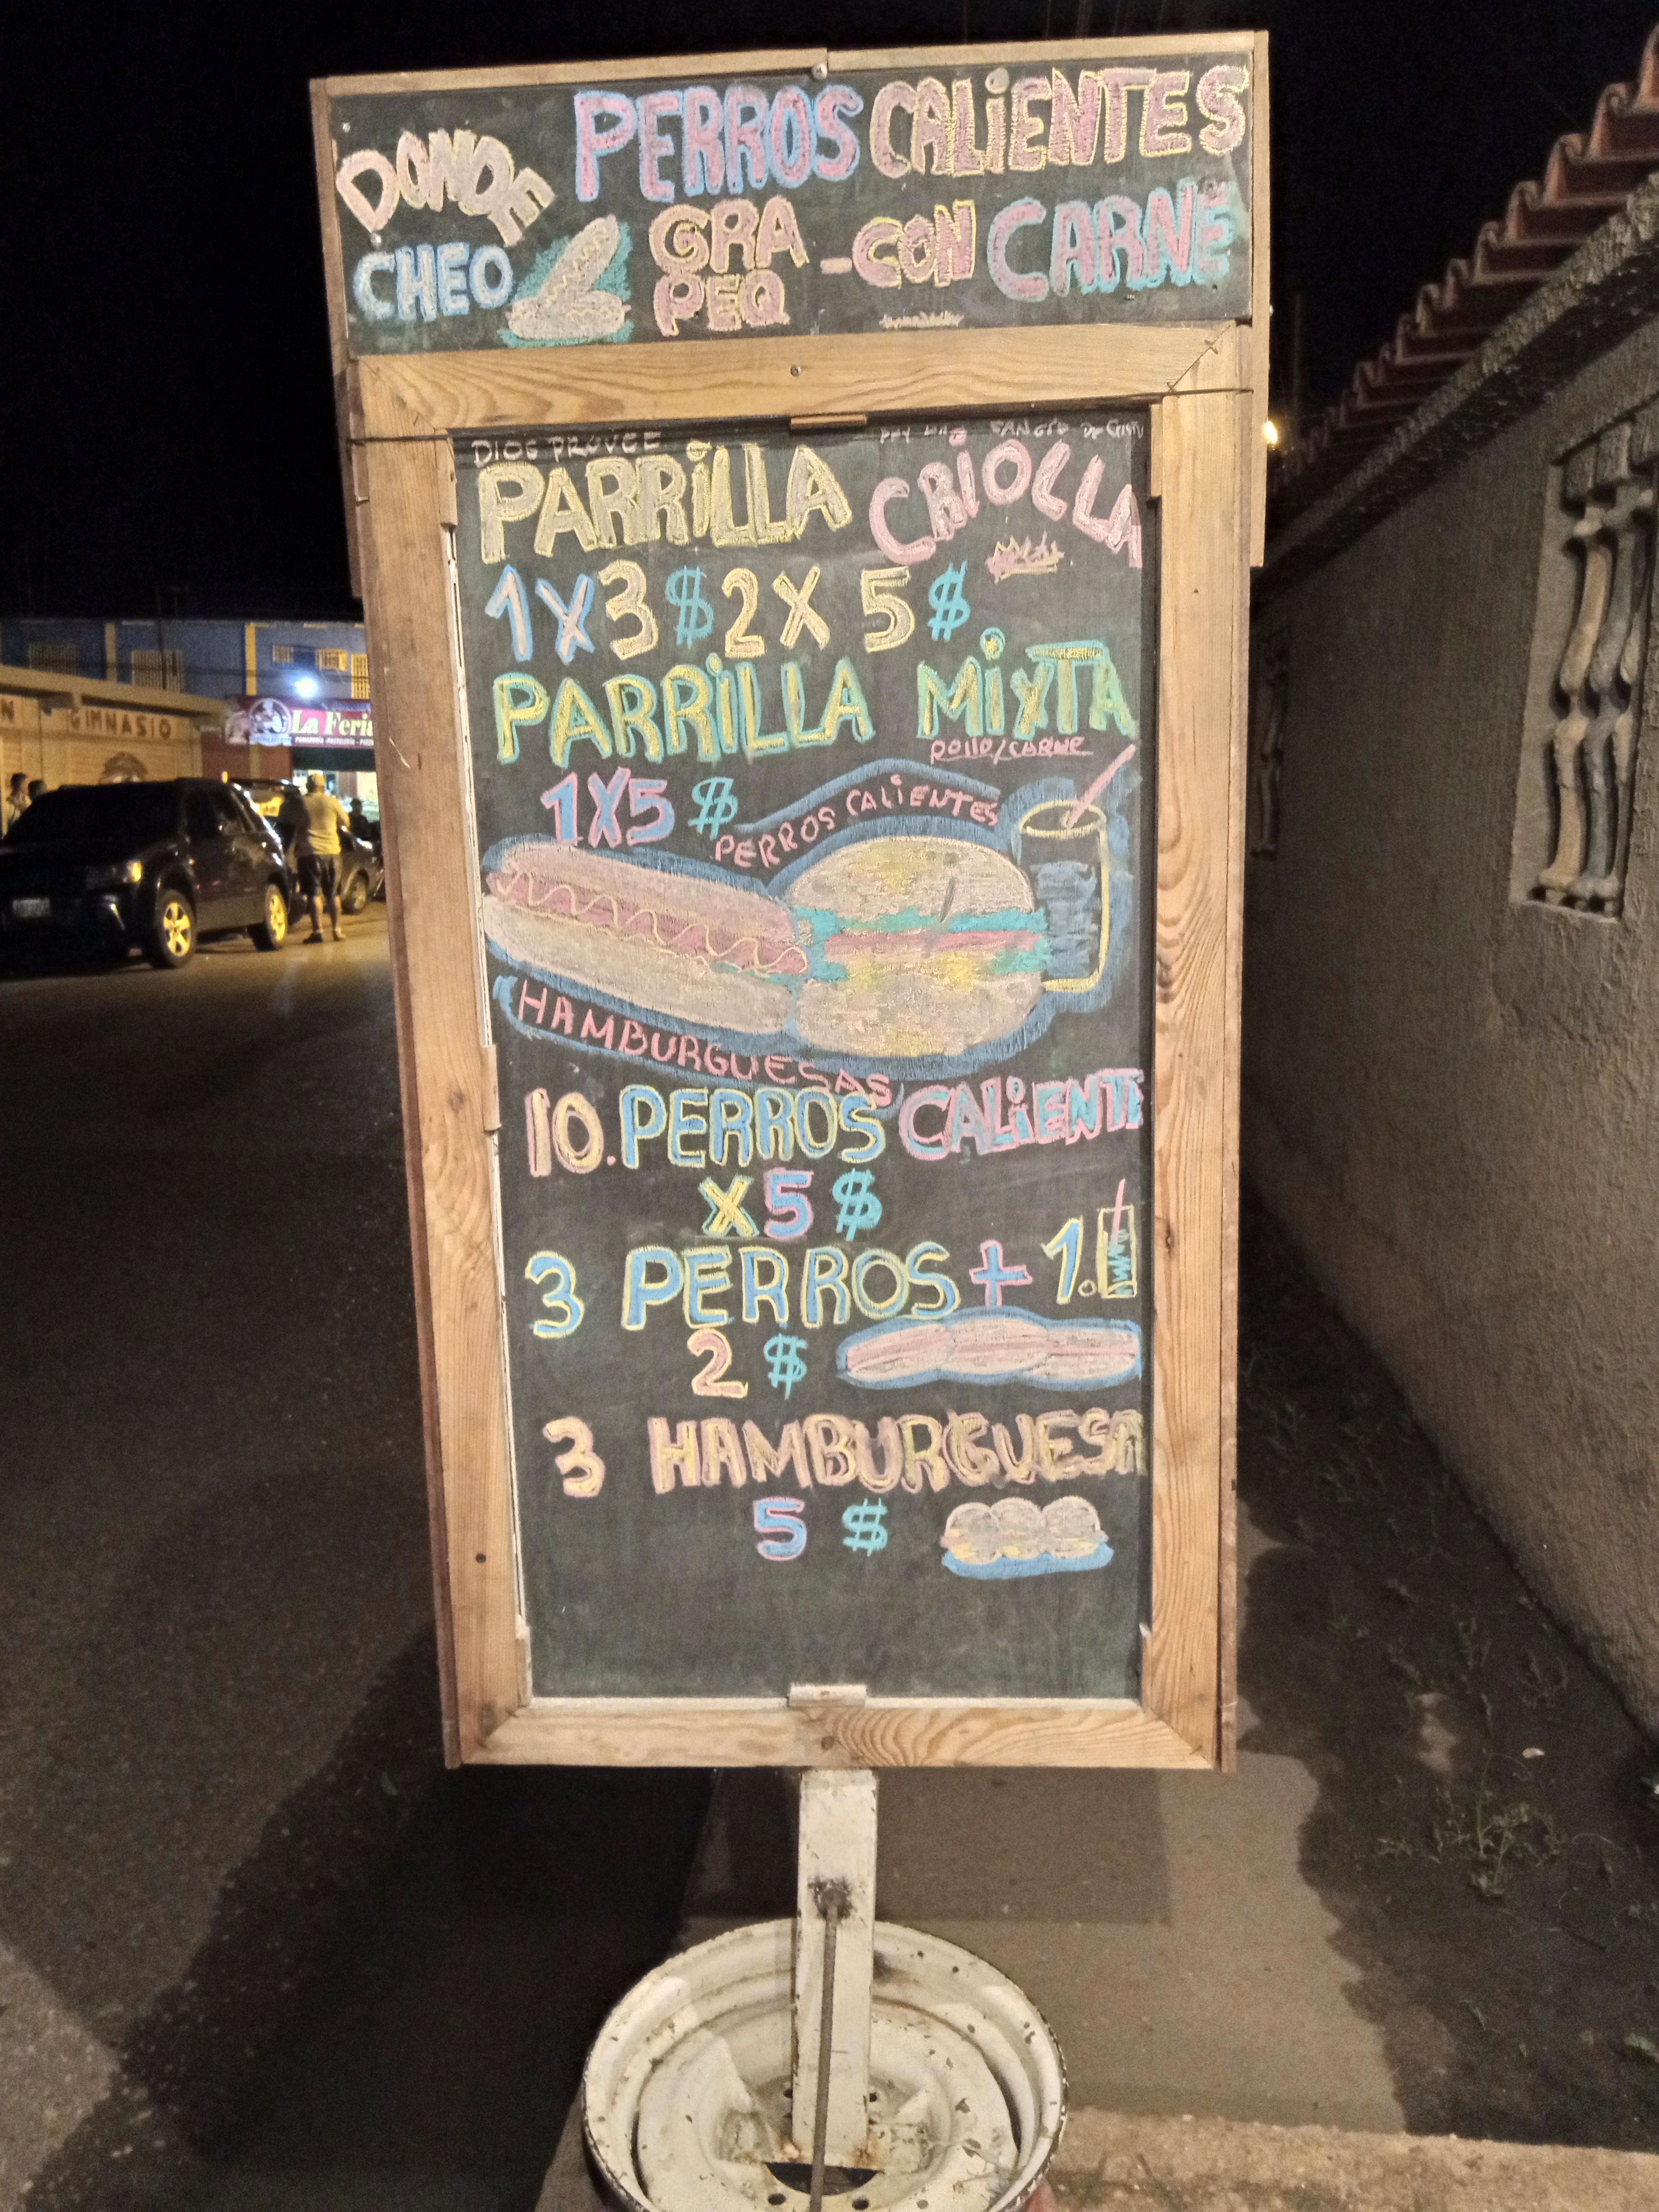 PERROS CALIENTES
DONDE
CHEO
GRA
PEQ
-CON CARNE
DIOS PROVEE
SANGRE DE CRISTO
PARRILLA CRIOLLA
1X3$ 2X5$
PARRILLA MIXTA
POLLO/CARNE
1X5$
PERROS CALIENTES
HAMBURGUESAS
10. PERROS CALIENTE
X5$
3 PERROS + 1.
2 $
3 HAMBURGUESA
5 $
GIMNASIO
La Feria